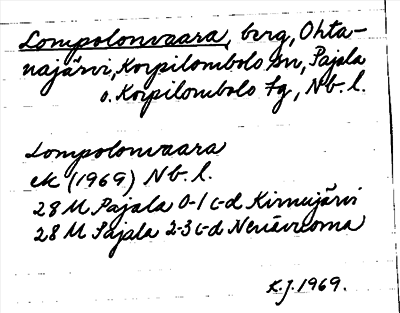 Lompolonvaara, berg, Ohta-
najärvi, Korpilombolo sn, Pajala
o. Korpilombolo tg, Nb. l.
Lompolonvaara
ek (1969) Nb. l.
28 M Pajala 0-1 c-d Kirnujärvi
28 M Pajala 2-3 c-d
K.J. 1969.